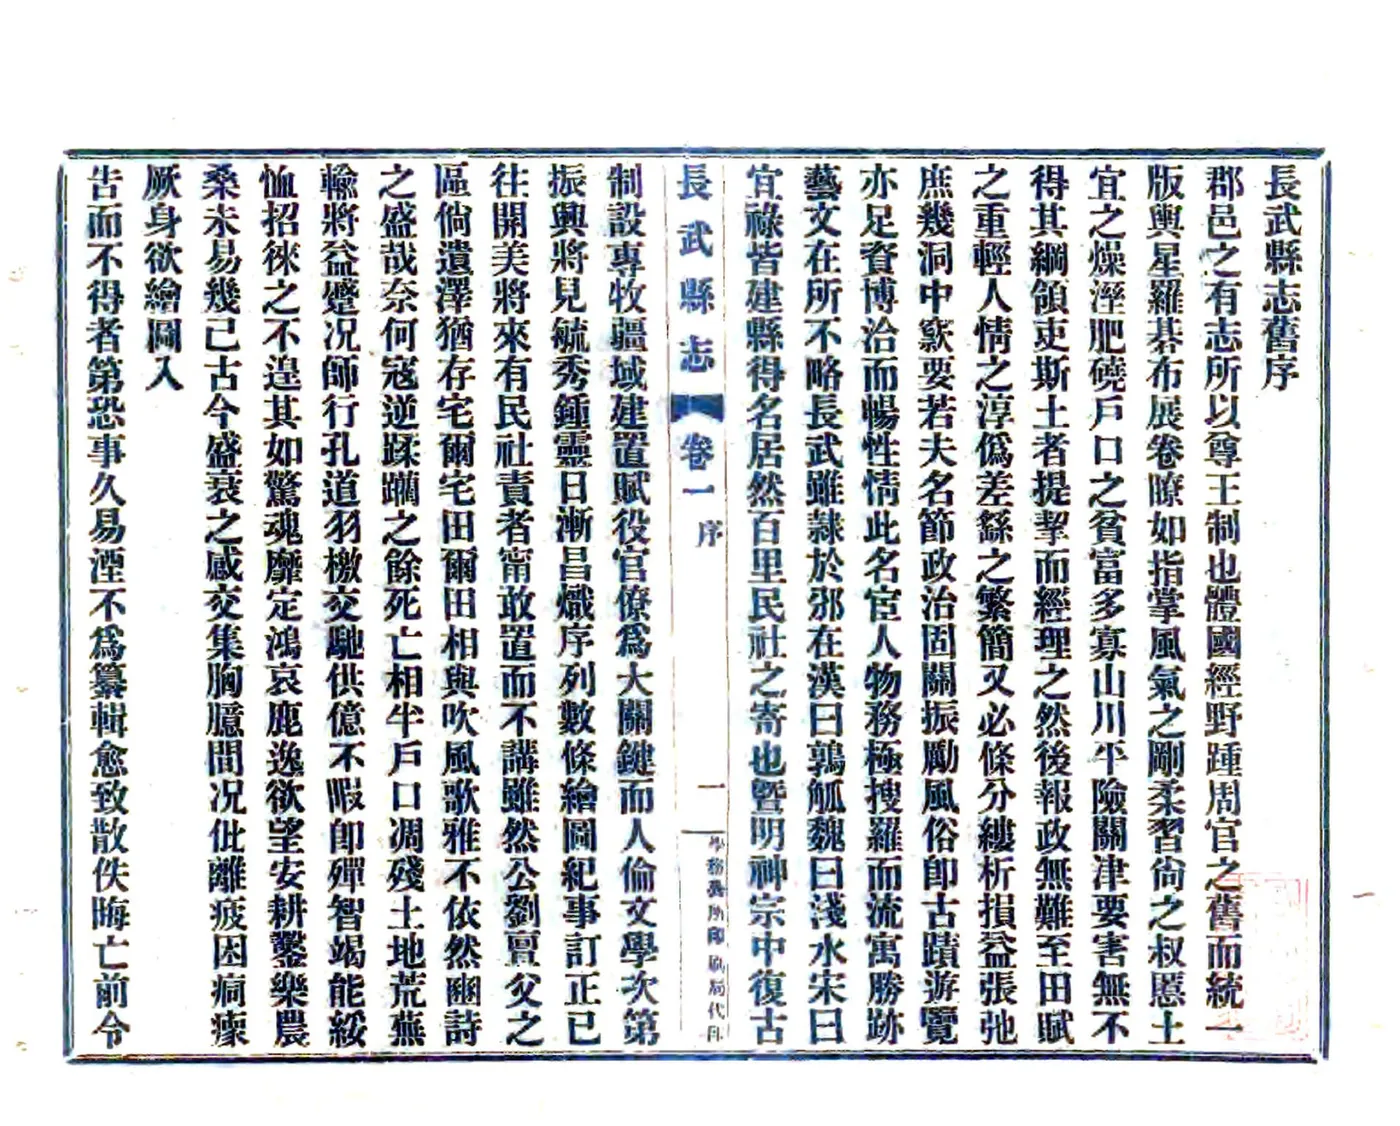 長武縣志舊序
郡邑之有志所以尊王制也體國經野踵周官之舊而統一
版輿星羅碁布展卷瞭如指掌風氣之剛柔習尙之叔慝土
宜之燥溼肥磽戶口之貧富多寡山川平險關津要害無不
得其綱領吏斯土者提挈而經理之然後報政無難至田賦
之重輕人情之淳僞差繇之繁簡又必條分縷析損益張弛
庶幾洞中窾要若夫名節政治固關振勵風俗卽古蹟游覽
亦足資博洽而暢性情此名宦人物務極搜羅而流寓勝跡
藝文在所不略長武雖隷於邠在漢曰鶉觚魏曰淺水宋曰
宜祿皆建縣得名居然百里民社之寄也曁明神宗中復古
長武縣志 卷一 序 一
學務 所印刷局代印
制設專牧疆域建置賦役官僚爲大關鍵而人倫文學次第
振興將見毓秀鍾靈日漸昌熾序列數條繪圖紀事訂正已
往開美將來有民社責者甯敢置而不講雖然公劉亶父之
區倘遺澤猶存宅爾宅田爾田相與吹風歌雅不依然豳詩
之盛哉奈何寇逆蹂躪之餘死亡相半戶口凋殘土地荒蕪
輸將益蹙况師行孔道羽檄交馳供億不暇卽殫智竭能綏
恤招徠之不遑其如驚魂靡定鴻哀鹿逸欲望安耕鑿樂農
桑未易幾已古今盛衰之感交集胸臆間况仳離疲困痌瘝
厥身欲繪圖入
告而不得者第恐事久易湮不爲纂輯愈致散佚晦亡前令